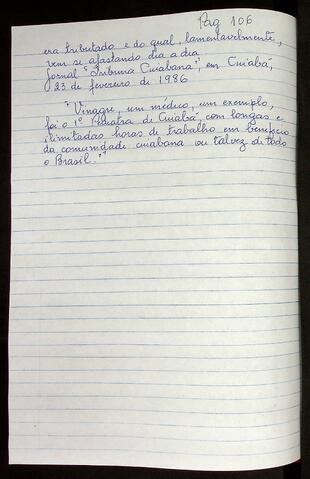 Pag 106
era tributado e do qual, lamentavelmente,
vem se afastando dia a dia
Jornal "Tribuna Cuiabana", em Cuiabá,
23 de fevereiro de 1986
"Vinagre, um médico, um exemplo,
foi o 1º Pediatra de Cuiabá, com longas e
ilimitadas horas de trabalho em benefício
da comunidade cuiabana ou talvez de todo
o Brasil."